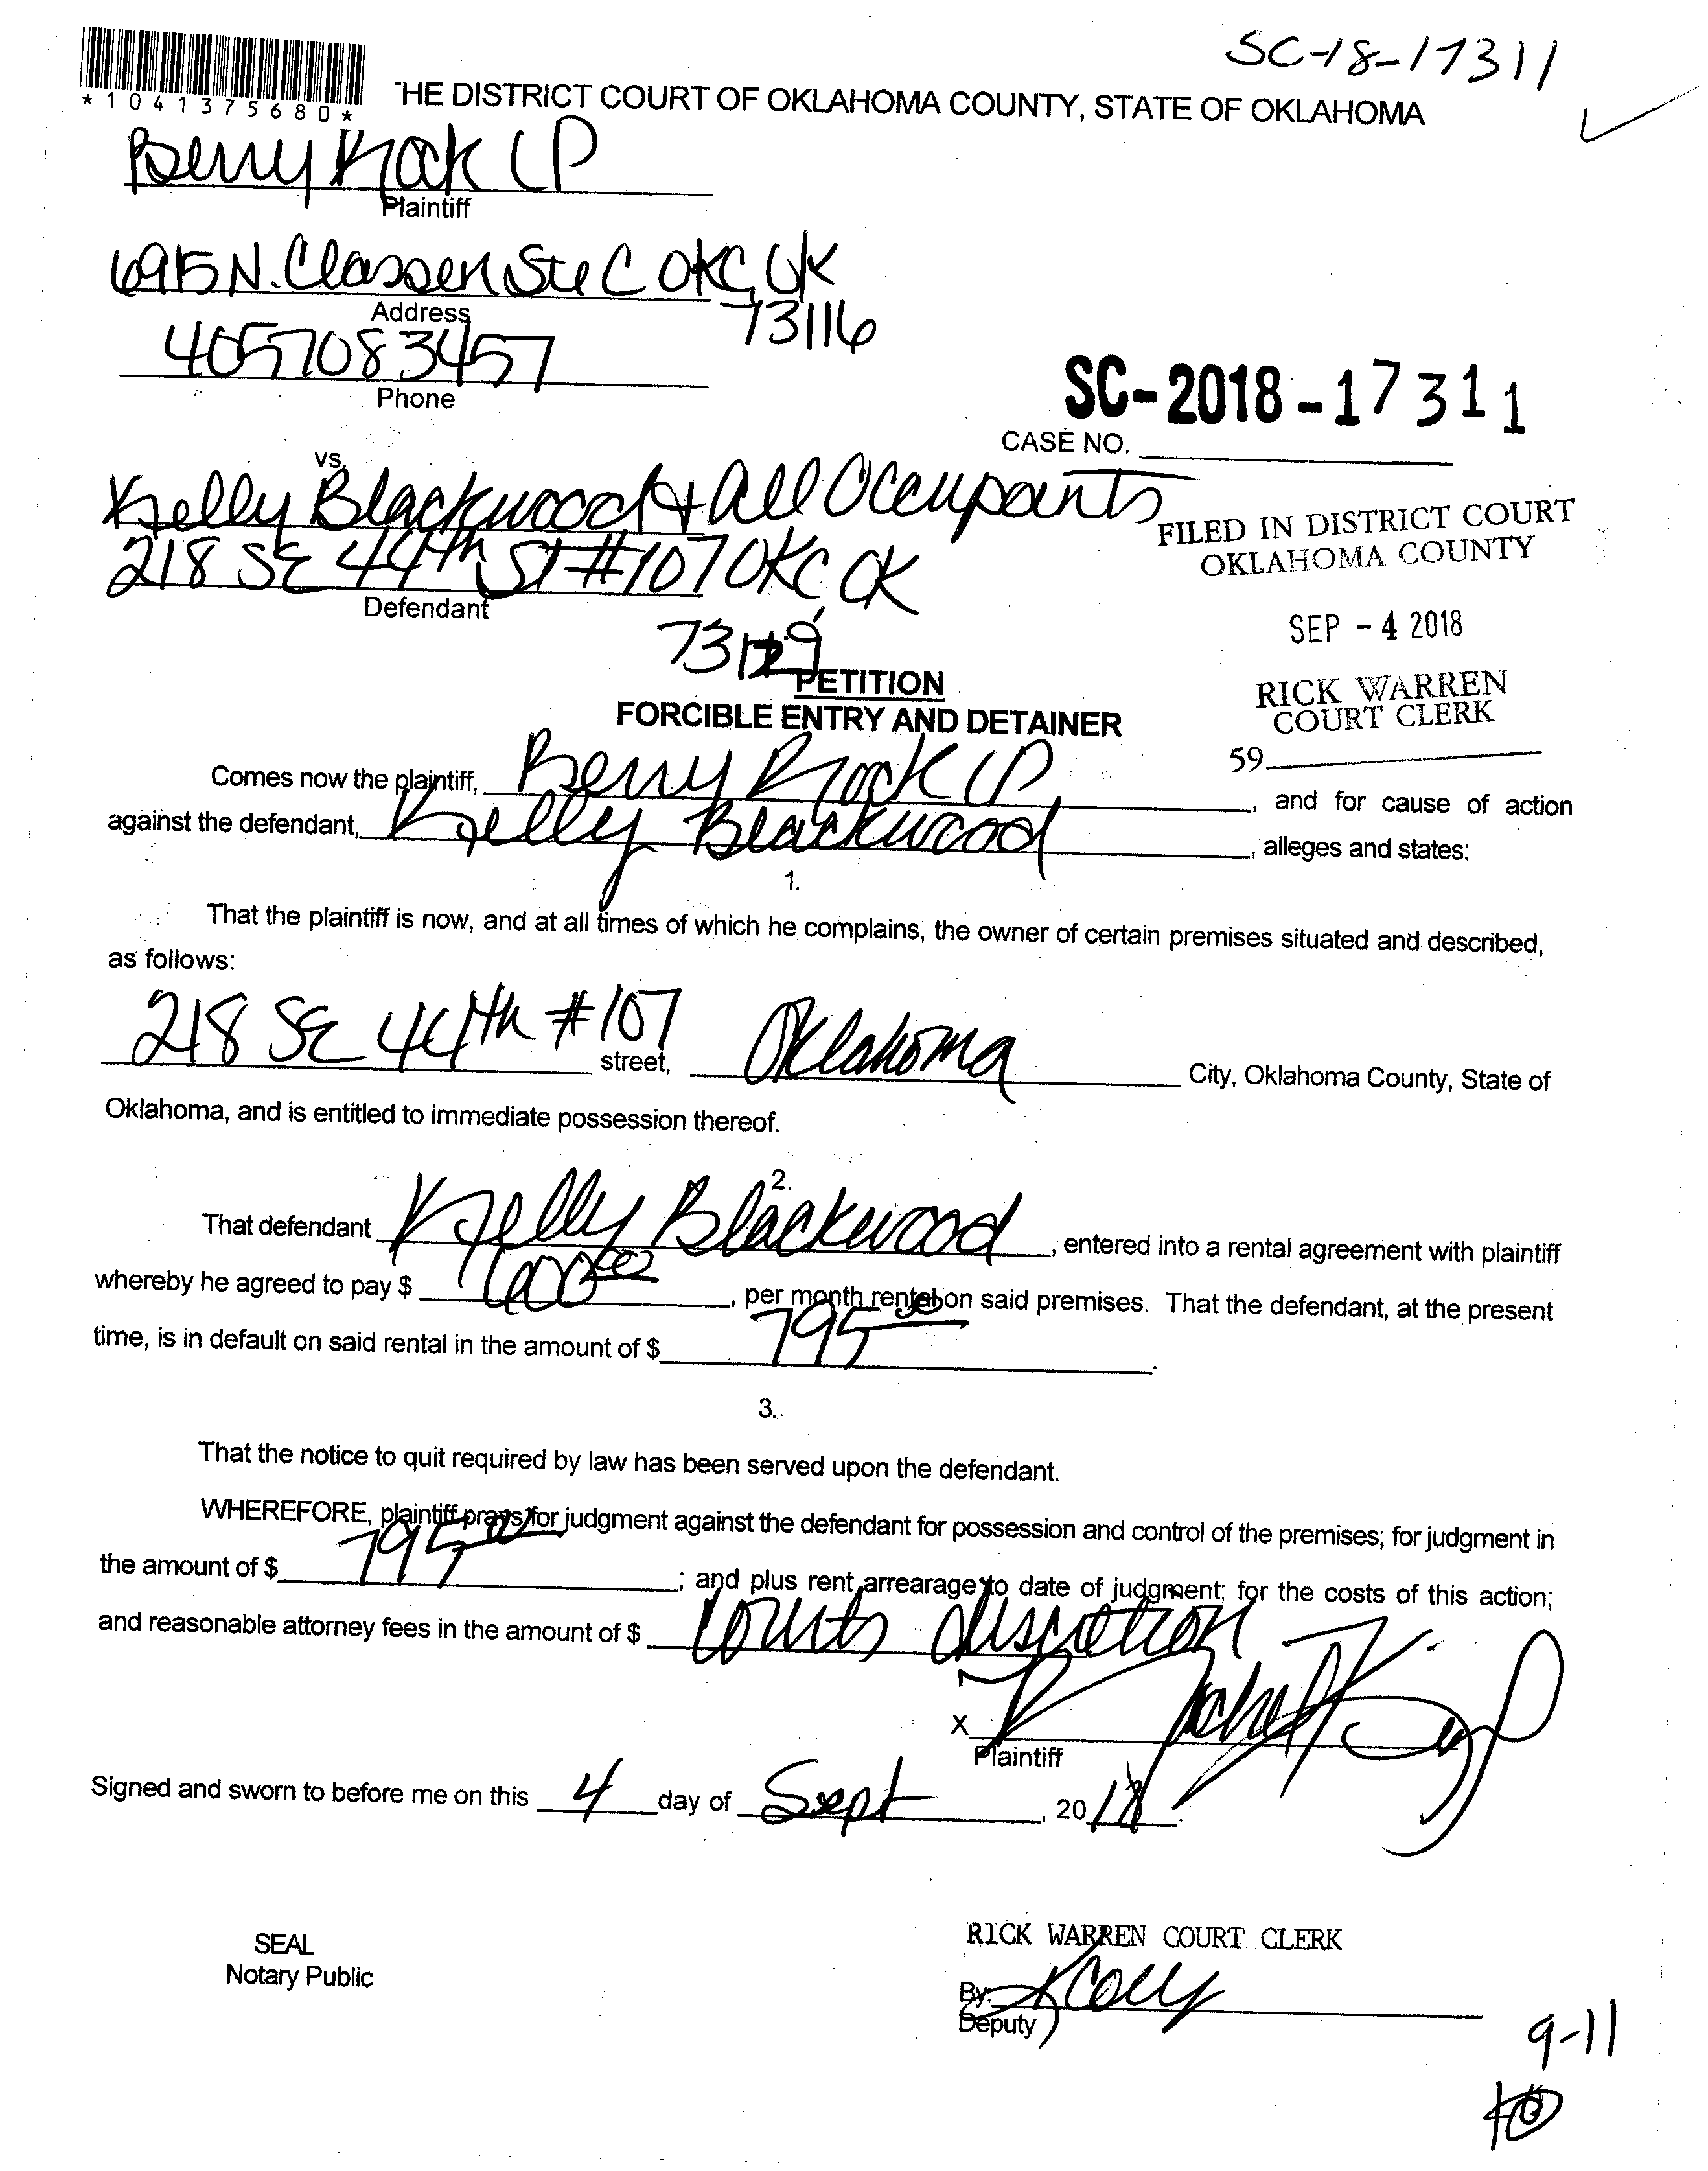 SC-18-17311
*1041375680*
THE DISTRICT COURT OF OKLAHOMA COUNTY, STATE OF OKLAHOMA
Berry Rock LP
Plaintiff
6915 N. Classen Ste C OKC OK
73116
Address
4057083457
Phone
SC-2018-17311
CASE NO.
vs.
Kelly Blackwood + All Occupants
218 SE 44th St #107 OKC OK
Defendant
73129
FILED IN DISTRICT COURT
OKLAHOMA COUNTY
SEP - 4 2018
RICK WARREN
COURT CLERK
59
PETITION
FORCIBLE ENTRY AND DETAINER
Comes now the plaintiff, Berry Rock LP, and for cause of action
against the defendant, Kelly Blackwood, alleges and states:
1.
That the plaintiff is now, and at all times of which he complains, the owner of certain premises situated and described,
as follows:
218 SE 44th #107 street, Oklahoma City, Oklahoma County, State of
Oklahoma, and is entitled to immediate possession thereof.
2.
That defendant Kelly Blackwood, entered into a rental agreement with plaintiff
whereby he agreed to pay $ 600.00, per month rental on said premises. That the defendant, at the present
time, is in default on said rental in the amount of $ 795.00.
3.
That the notice to quit required by law has been served upon the defendant.
WHEREFORE, plaintiff prays for judgment against the defendant for possession and control of the premises; for judgment in
the amount of $ 795.00; and plus rent arrearage to date of judgment; for the costs of this action;
and reasonable attorney fees in the amount of $ Courts discretion
X
Plaintiff
Signed and sworn to before me on this 4 day of Sept, 2018.
SEAL
Notary Public
RICK WARREN COURT CLERK
By:
Deputy
9-11